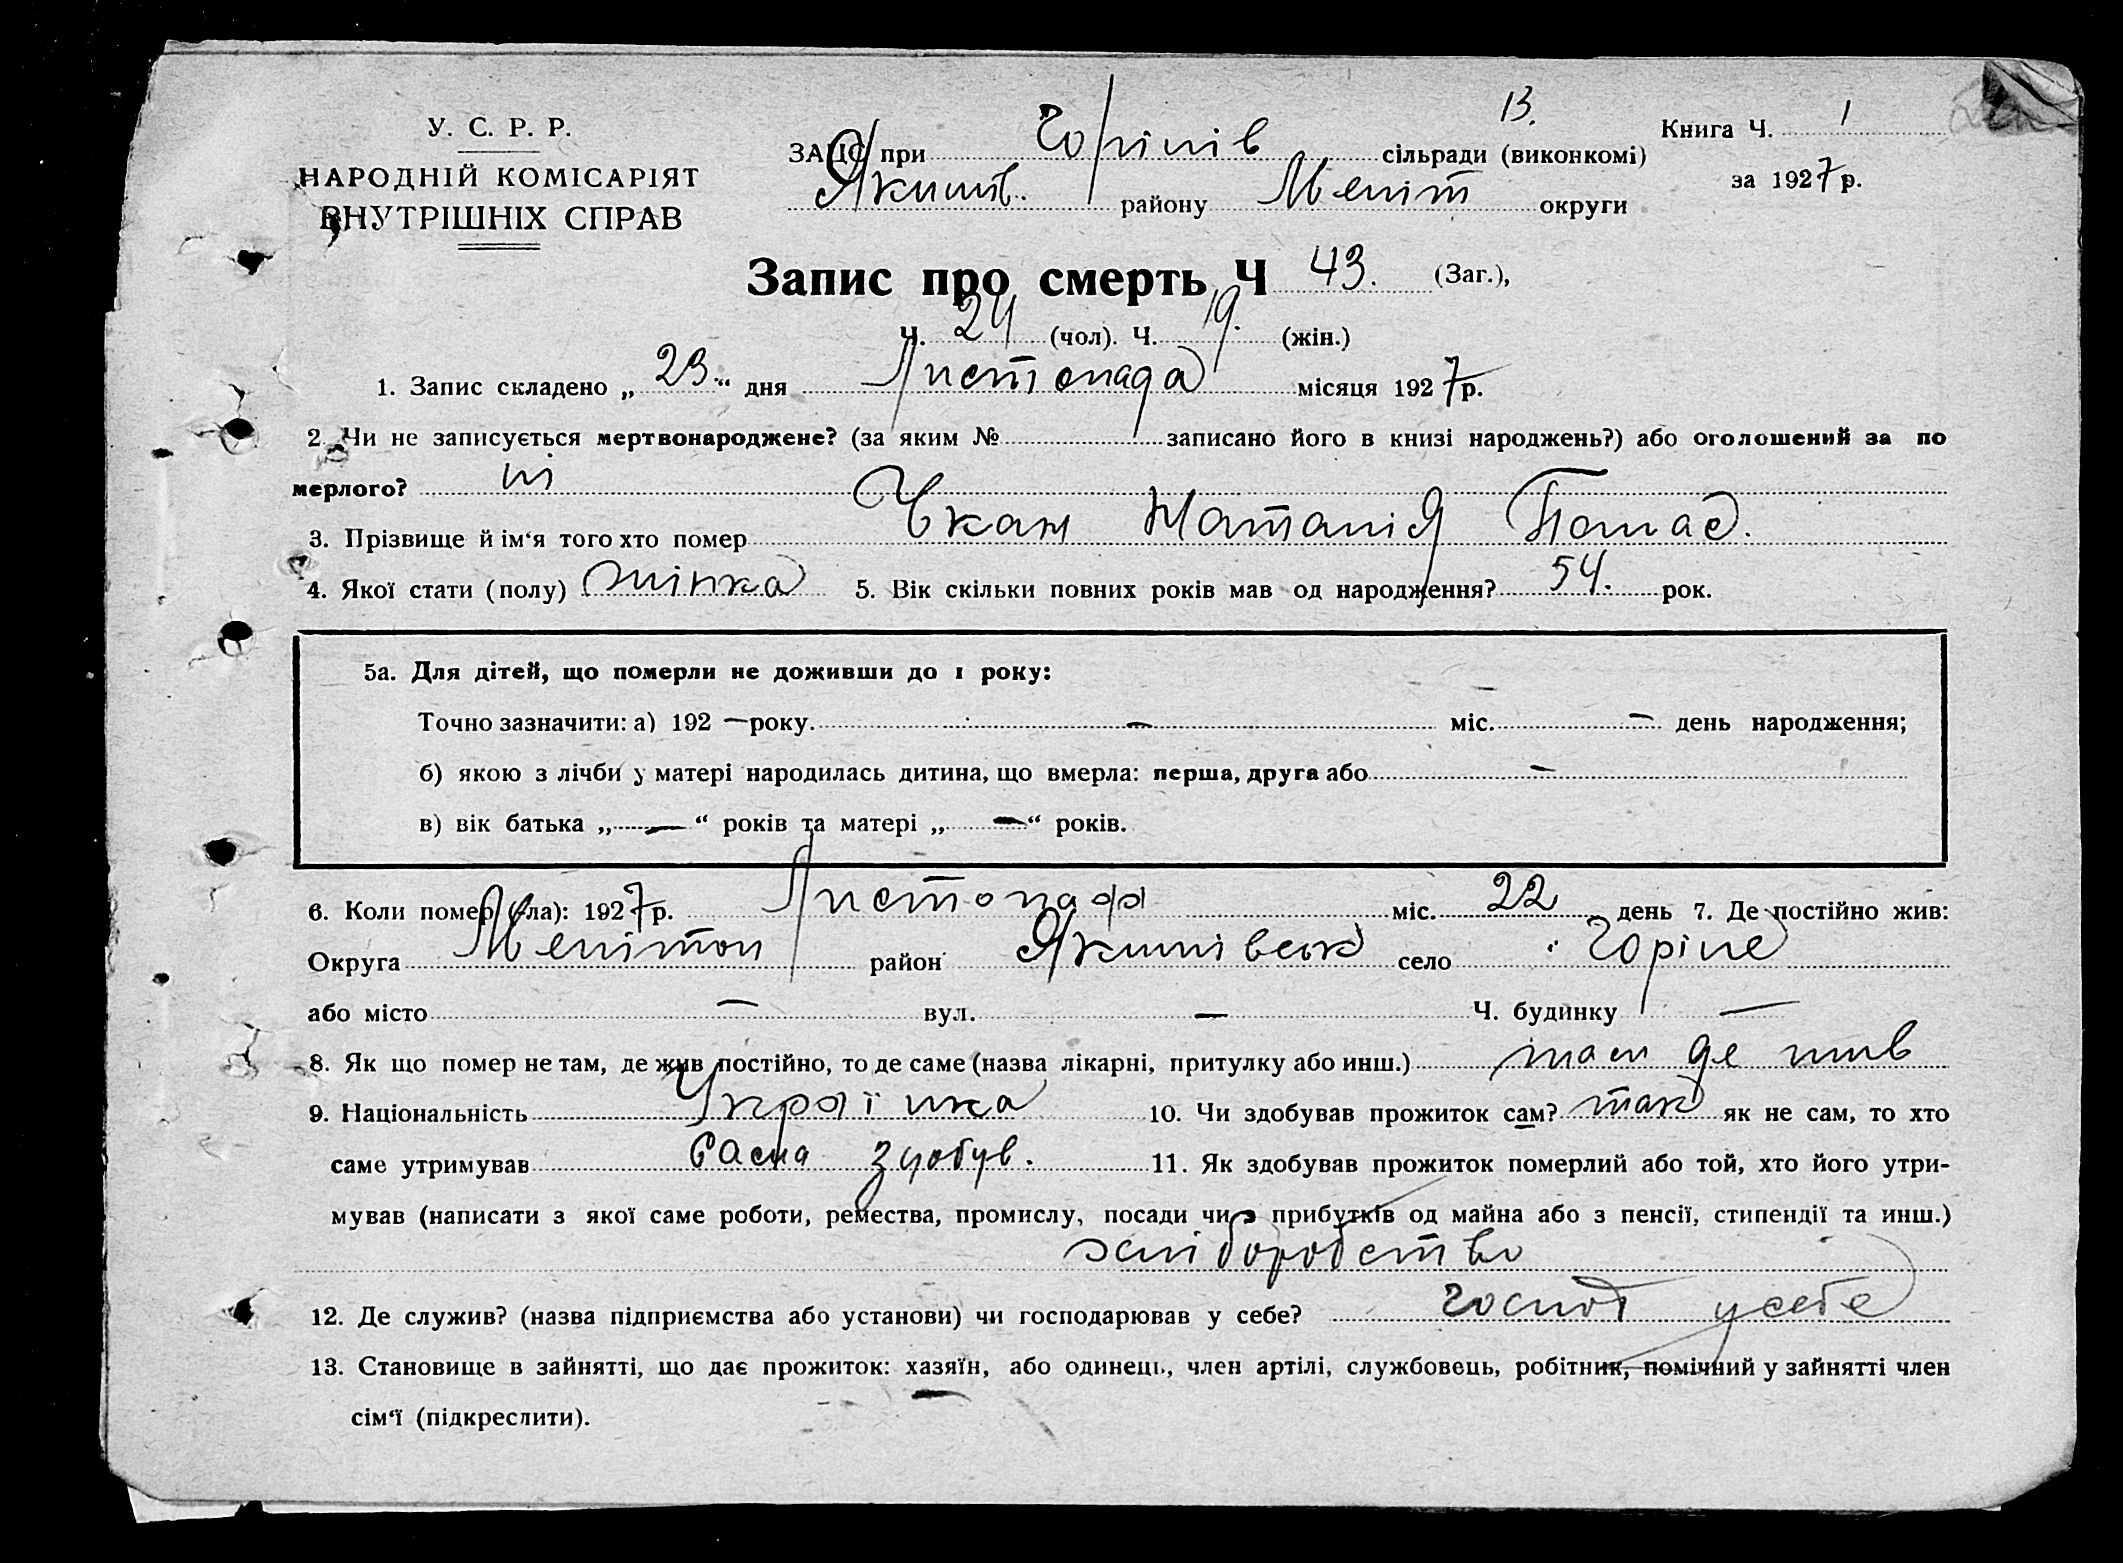 13.
У. С. Р. Р.
НАРОДНІЙ КОМІСАРІЯТ
ВНУТРІШНІХ СПРАВ
ЗАЦС при Горілів сільради (виконкомі)
Якимів. району Меліт округи
Книга Ч. 1
за 1927 р.
Запис про смерть Ч 43. (Заг.),
Ч. 24 (чол). Ч. 19. (жін.)
1. Запис складено „23“ дня Листопада місяця 1927 р.
2. Чи не записується мертвонароджене? (за яким № записано його в книзі народжень?) або оголошений за по
мерлого? ні
3. Прізвище й ім‘я того хто помер Чкан Наталія Панас.
4. Якої стати (полу) жінка 5. Вік скільки повних років мав од народження? 54. рок.
5а. Для дітей, що померли не доживши до 1 року:
Точно зазначити: а) 192 — року. — міс. — день народження;
б) якою з лічби у матері народилась дитина, що вмерла: перша, друга або —
в) вік батька „—“ років та матері „—“ років.
6. Коли помер (ла): 1927 р. Листопада міс. 22 день 7. Де постійно жив:
Округа Мелітоп район Якимівськ село Горіле
або місто — вул. — Ч. будинку —
8. Як що помер не там, де жив постійно, то де саме (назва лікарні, притулку або инш.) там де жив
9. Національність Україинка 10. Чи здобував прожиток сам? так як не сам, то хто
саме утримував сама здобув. 11. Як здобував прожиток померлий або той, хто його утри-
мував (написати з якої саме роботи, ремества, промислу, посади чи з прибутків од майна або з пенсії, стипендії та инш.)
хліборобство
12. Де служив? (назва підприємства або установи) чи господарював у себе? господ у себе
13. Становище в зайнятті, що дає прожиток: хазяїн, або одинець, член артілі, службовець, робітник, помічний у зайнятті член
сім‘ї (підкреслити).